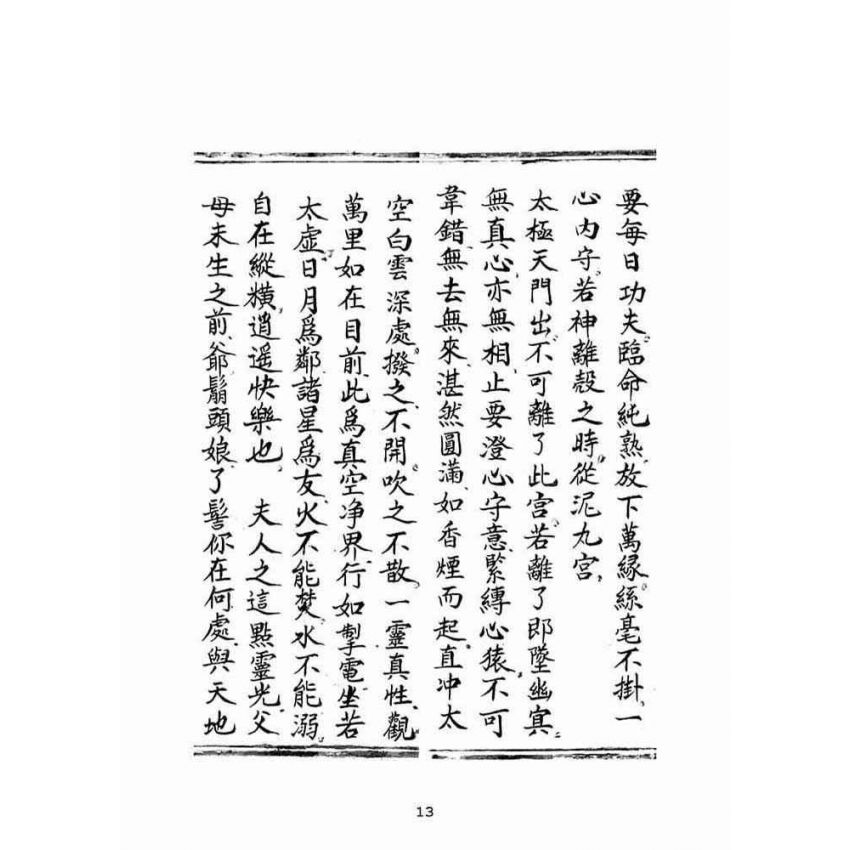 要每日功夫、臨命純熟、放下萬縁、絲毫不掛、一
心内守。若神離殼之時、從泥丸宮、
太極天門出、不可離了此宮、若離了即墜幽冥
無真心、亦無相、止要澄心守意、緊縛心猿、不可
韋錯、無去無來、湛然圓滿、如香煙而起、直冲太
空、白雲深處、撥之不開、吹之不散、一靈真性、觀
萬里如在目前、此爲真空净界、行如掣電、坐若
太虚、日月爲鄰、諸星爲友、火不能焚、水不能溺、
自在縱橫、逍遥快樂也、　夫人之這點靈光、父
母未生之前、爺鬅頭、娘了髻、你在何處、與天地
13